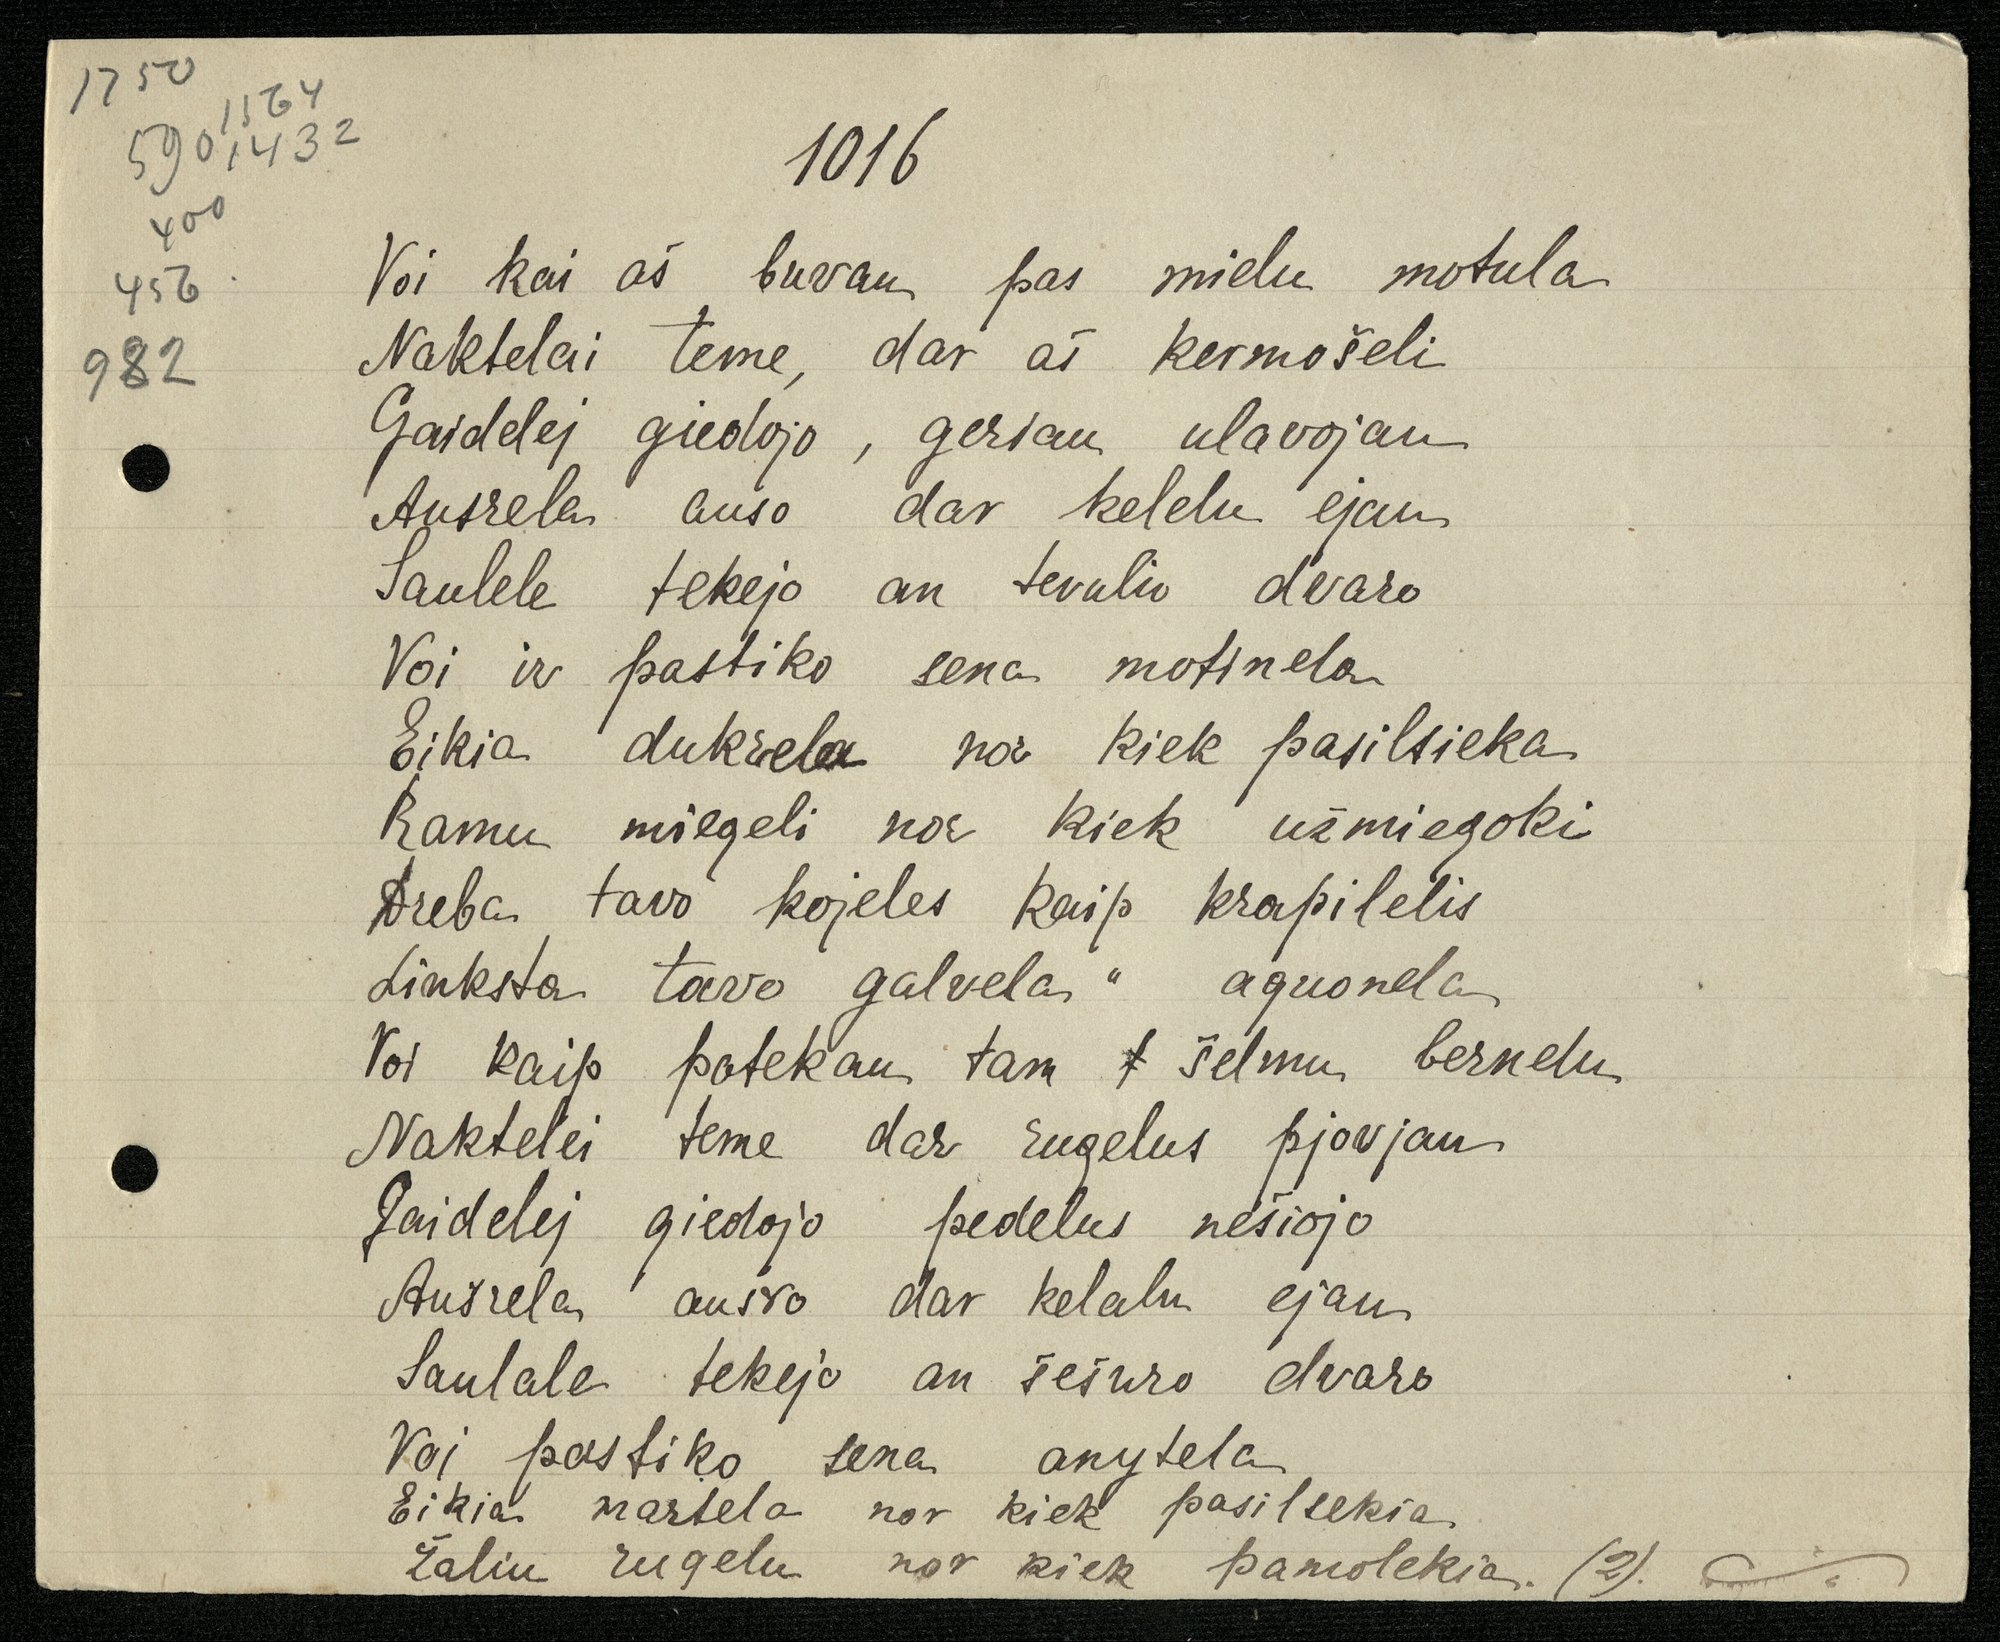 1750
1564
590 1432
400
456
982
1016
Voi kai aš buvau pas mielu motula
Naktelai teme, dar aš kermošeli
Gaidelej giedojo, geriau ulavojau
Ausrela auso dar kelelu ejau
Saulele tekejo an tevuliu dvaro
Voi ir pastiko sena motinela
Eikia dukrela nor kiek pasilsieka
Ramu miegeli nor kiek užmiegoki
Dreba tavo kojeles kaip krapilelis
Linksta tavo galvela " aguonela
Voi kaip patekau tam šelmu bernelu
Naktelei teme dar rugelus pjovjau
Gaidelej giedojo pedelus nešiojo
Aušrela ausro dar kelalu ejau
Saulale tekejo an šešuro dvaro
Voi pastiko sena anytela
Eikia martela nor kiek pasilsekia
Žaliu rugelu nor kiek pamolekia. (2).